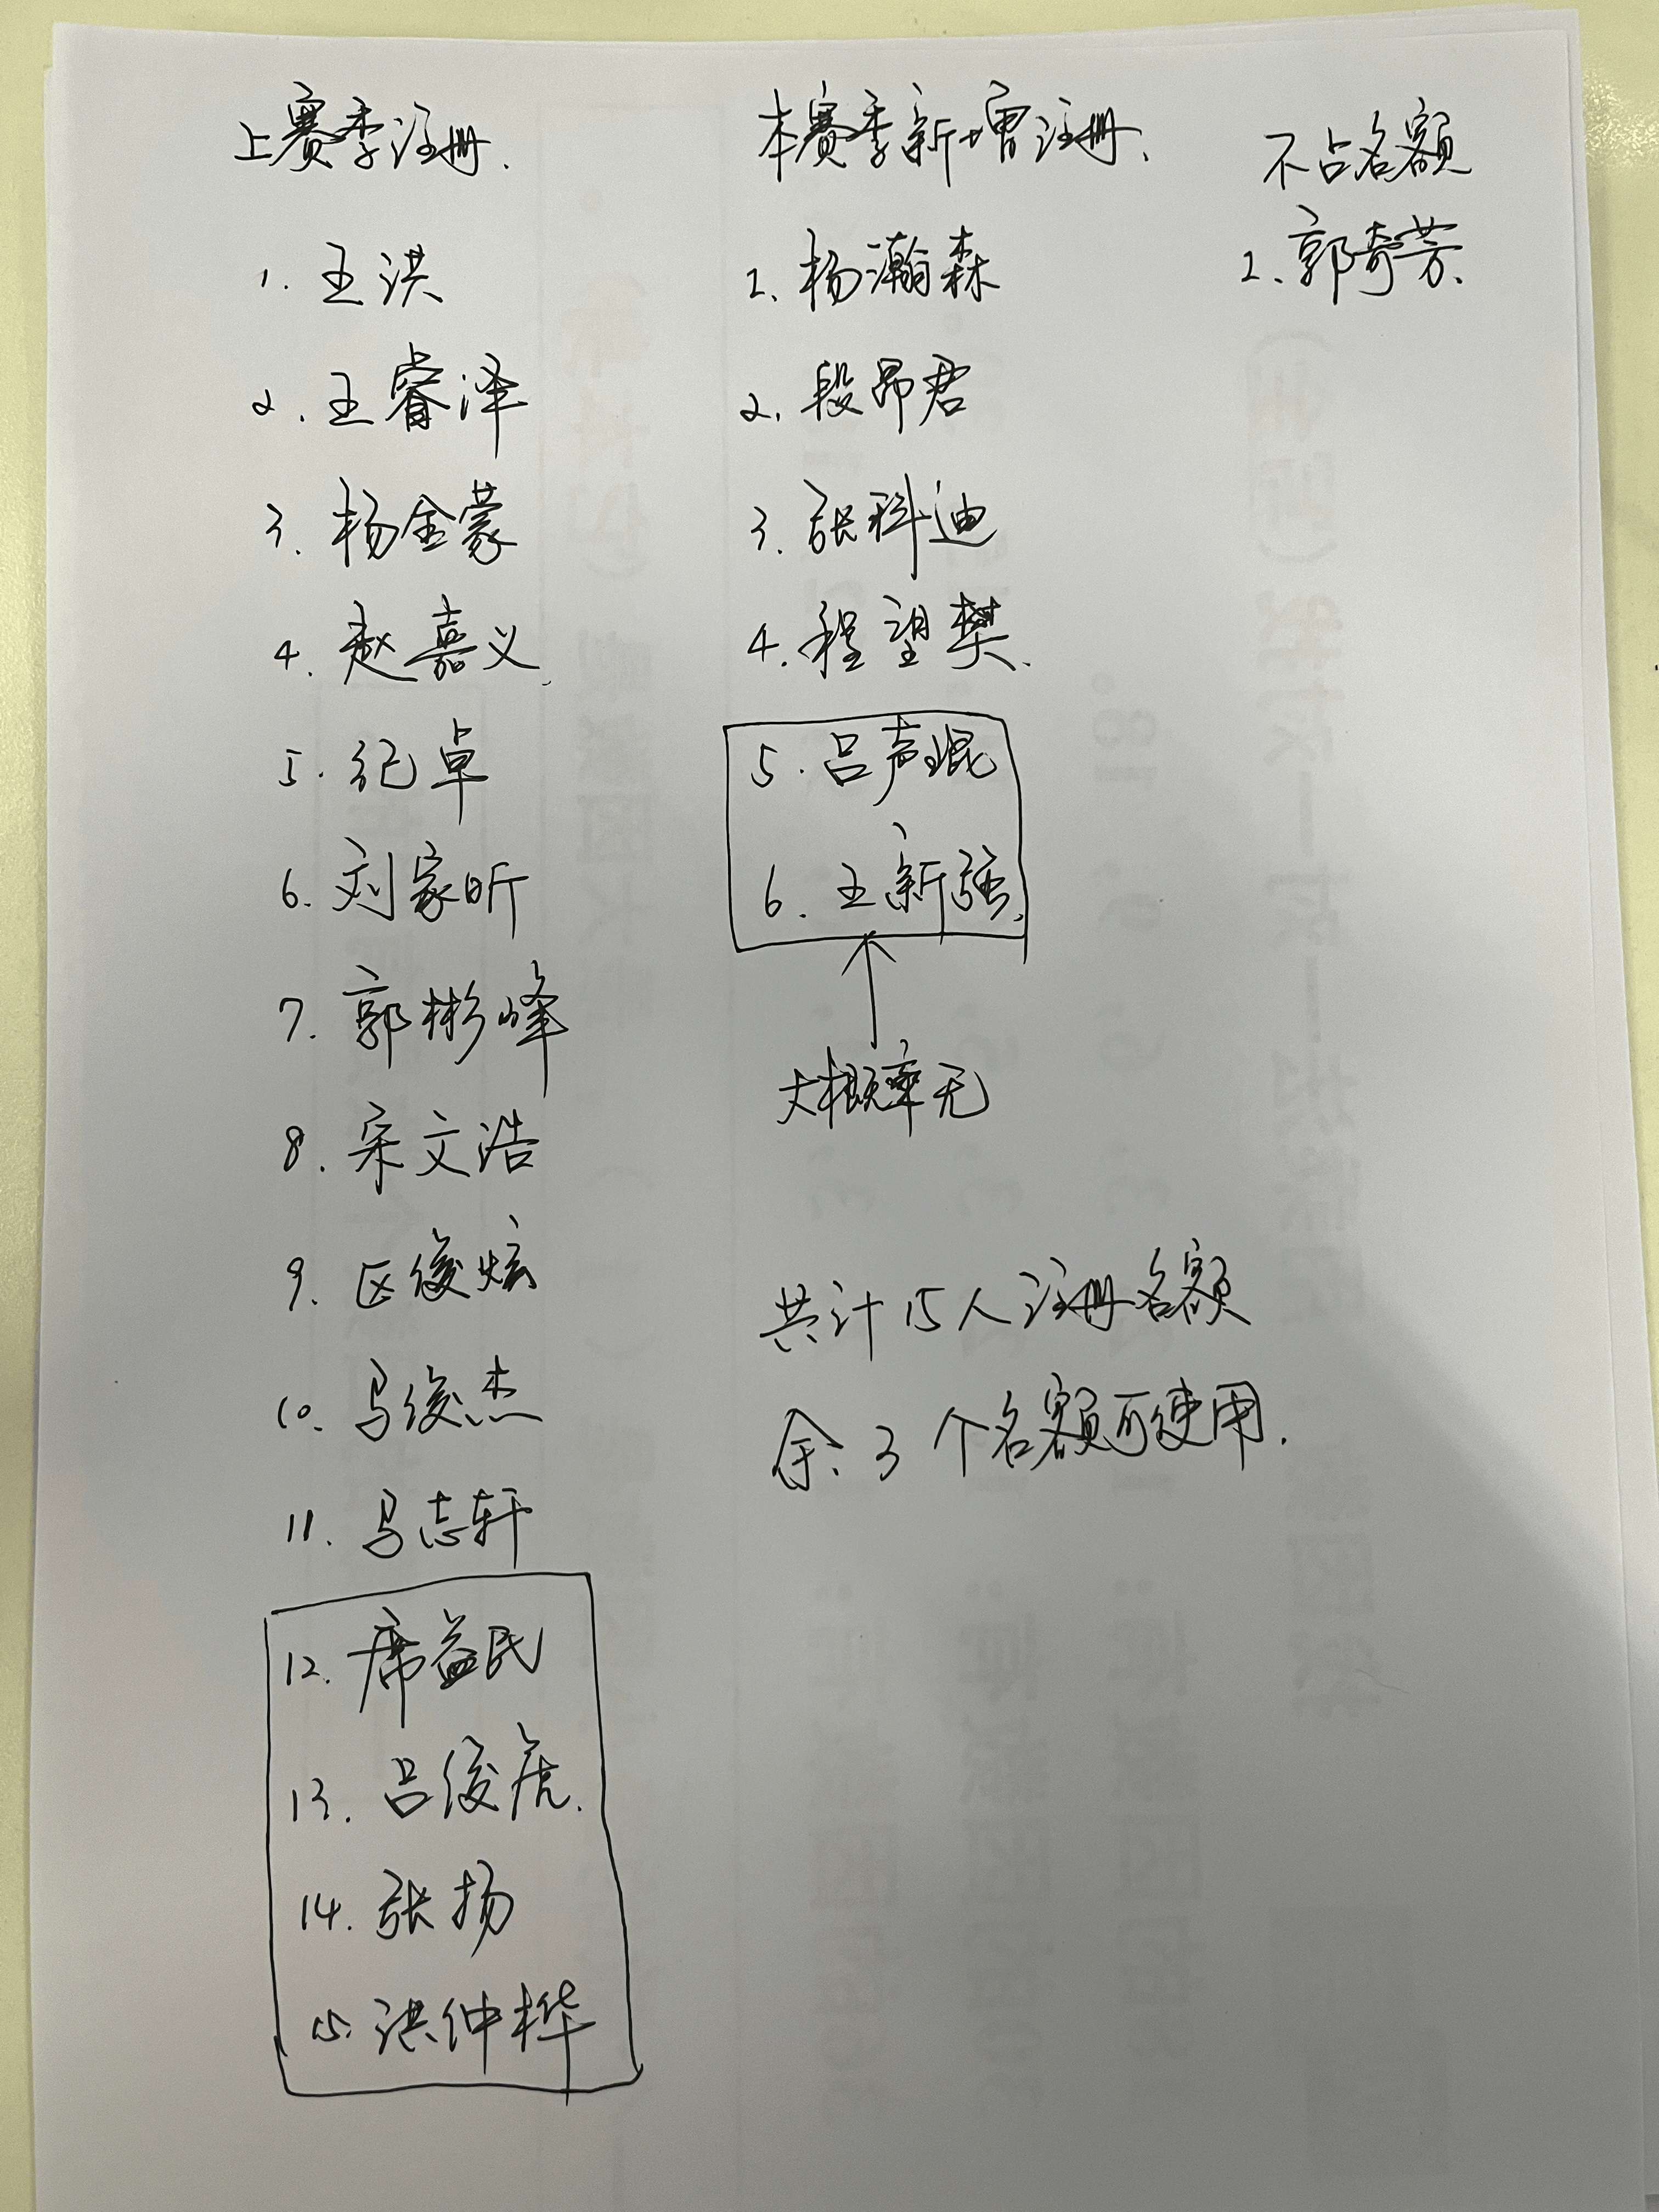 上赛季注册.
1. 王洪
2. 王睿泽
3. 杨金蒙
4. 赵嘉义.
5. 纪卓
6. 刘家昕
7. 郭彬峰
8. 宋文浩
9. 区俊炫
10. 马俊杰
11. 马志轩
12. 席益民
13. 吕俊虎.
14. 张扬
15. 洪仲桦
本赛季新增注册.
1. 杨瀚森
2. 段昂君
3. 张科迪
4. 程望樊.
5. 吕声琨
6. 王新强.
大概率无
共计15人注册名额
余: 3个名额可使用.
不占名额
1. 郭奇芳.